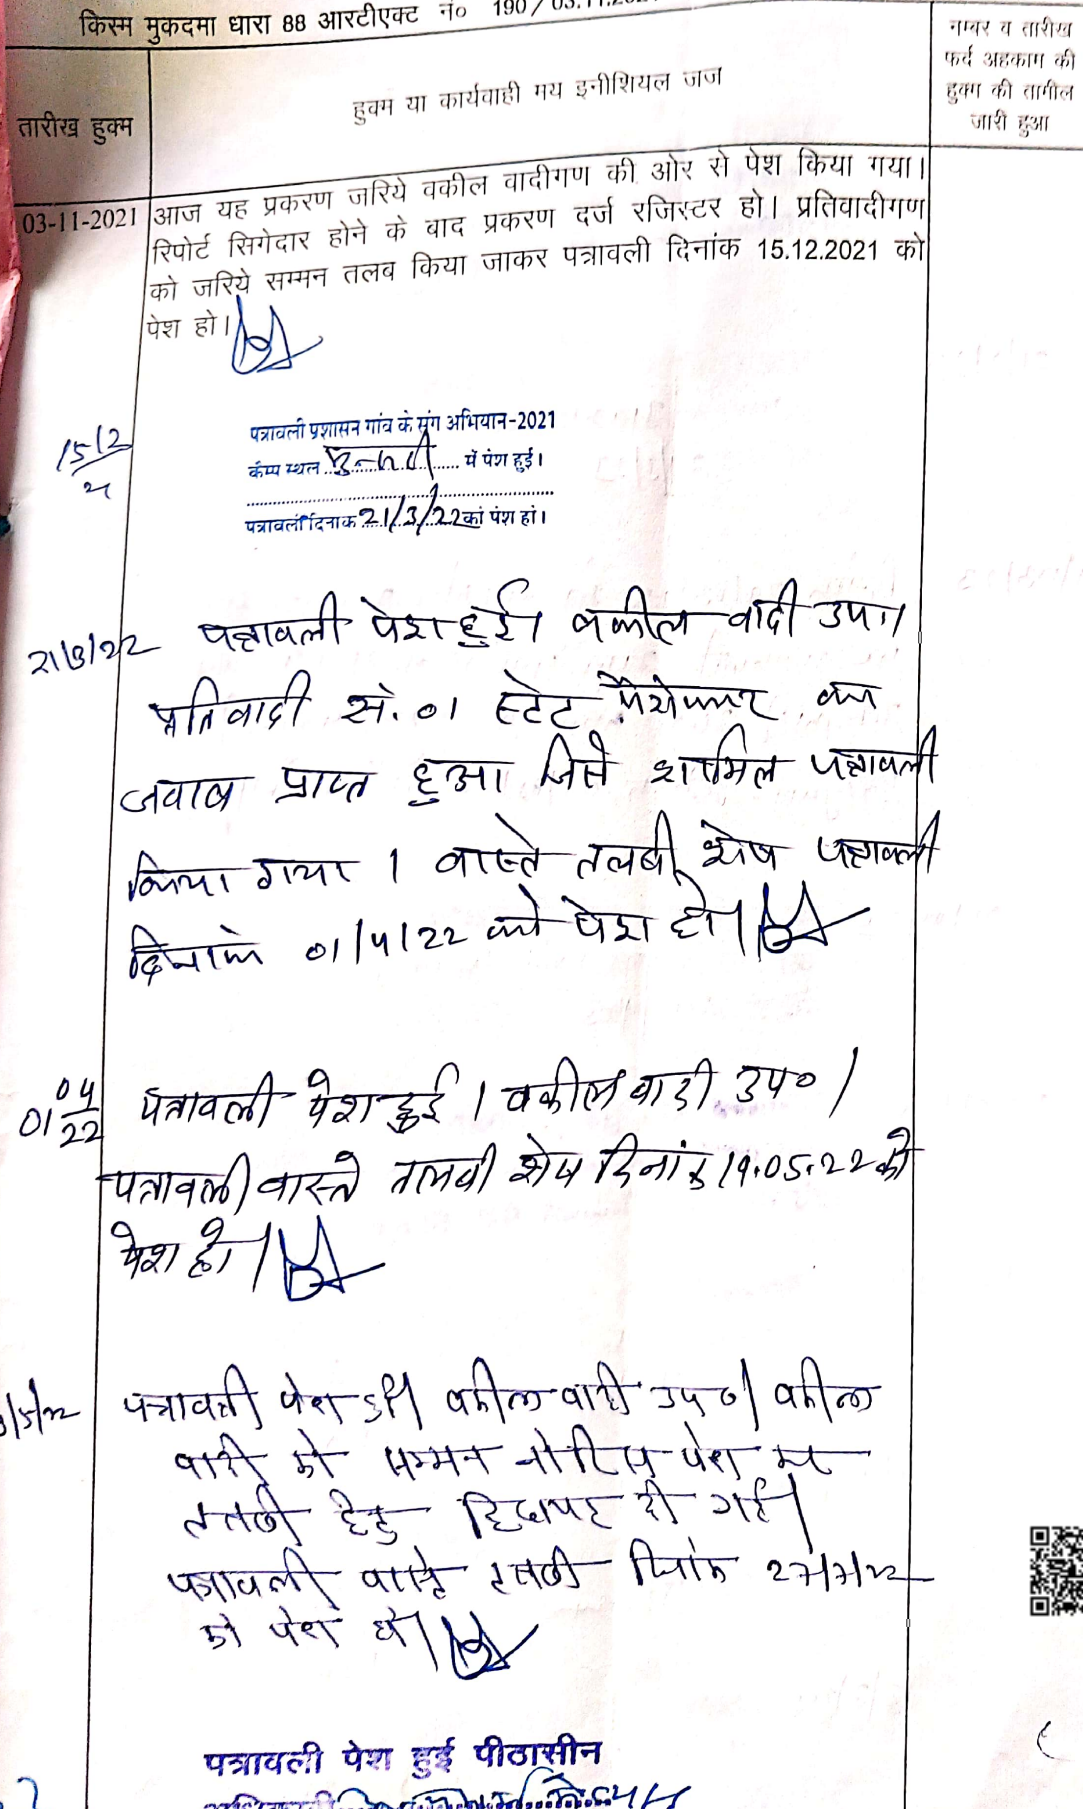 किस्म मुकदमा धारा 88 आरटीएक्ट नं० 190/ 03.11.
नम्बर व तारीख
फर्द अहकाम की
हुक्म की तामील
जारी हुआ
तारीख हुक्म
हुक्म या कार्यवाही मय इनीशियल जज
03-11-2021
आज यह प्रकरण जरिये वकील वादीगण की ओर से पेश किया गया।
रिपोर्ट सिगेदार होने के बाद प्रकरण दर्ज रजिस्टर हो। प्रतिवादीगण
को जरिये सम्मन तलब किया जाकर पत्रावली दिनांक 15.12.2021 को
पेश हो।
15/12
21
पत्रावली प्रशासन गांव के संग अभियान-2021
कैम्प स्थल में पेश हुई।
पत्रावली दिनांक 21/3/22 को पेश हो।
21/3/22
पत्रावली पेश हुई। वकील वादी उप।
प्रतिवादी सं. 01 स्टेट का
जवाब प्राप्त हुआ जिसे शामिल पत्रावली
किया गया । वास्ते तलबी शेष पत्रावली
दिनांक 01/4/22 को पेश हो।
01/04/22
पत्रावली पेश हुई । वकील वादी उप० ।
पत्रावली वास्ते तलबी शेष दिनांक 19.05.22 को
पेश हो।
/5/22
पत्रावली पेश हुई। वकील वादी उप०। वकील
वादी को सम्मन नोटिस पेश कर
तलबी हेतु हिदायत दी गई।
पत्रावली वास्ते तलबी दिनांक 27/7/22
को पेश हो।
पत्रावली पेश हुई पीठासीन